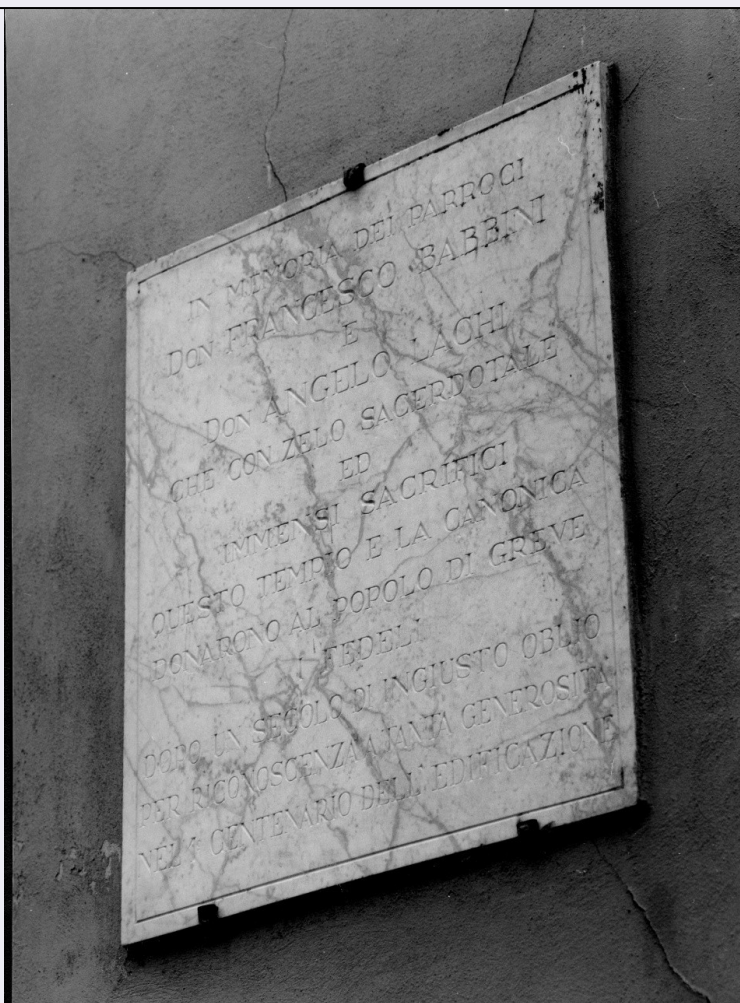 IN MEMORIA DEI PARROCI
DON FRANCESCO BABBINI
E
DON ANGELO LAGHI
CHE CON ZELO SACERDOTALE
ED
IMMENSI SACRIFICI
QUESTO TEMPIO E LA CANONICA
DONARONO AL POPOLO DI GREVE
FEDELI
DOPO UN SECOLO DI INGIUSTO OBLIO
PER RICONOSCENZA A TANTA GENEROSITÀ
NEL 1° CENTENARIO DELL'EDIFICAZIONE